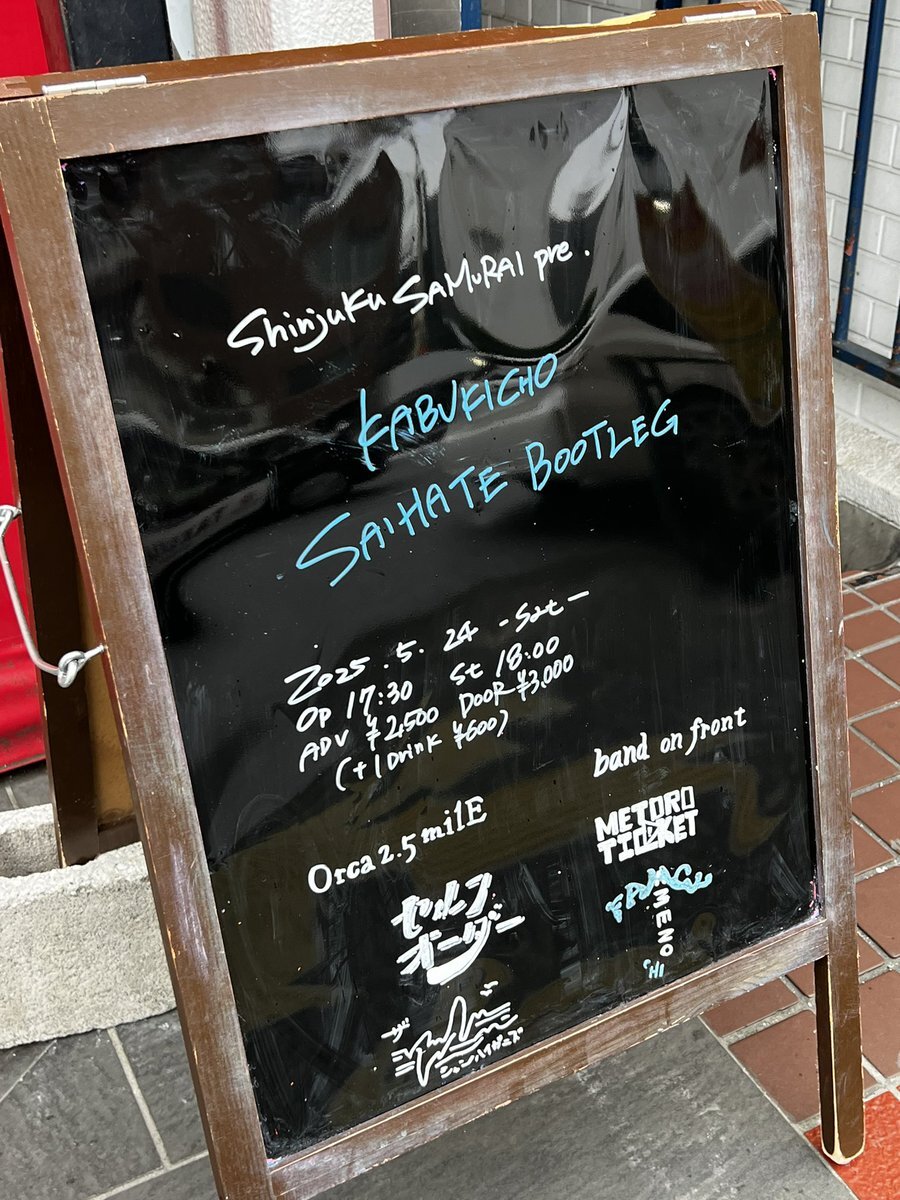 Shinjuku SAMURAI pre.
KABUKICHO
SAIHATE BOOTLEG
2025.5.24 -Sat-
OP 17:30 St 18:00
ADV ¥2,500 DOOR ¥3,000
(+1 Drink ¥600)
Orca 2.5 milE
band on front
セルフ
オーダー
METORO
TICKET
AMENO
'HI